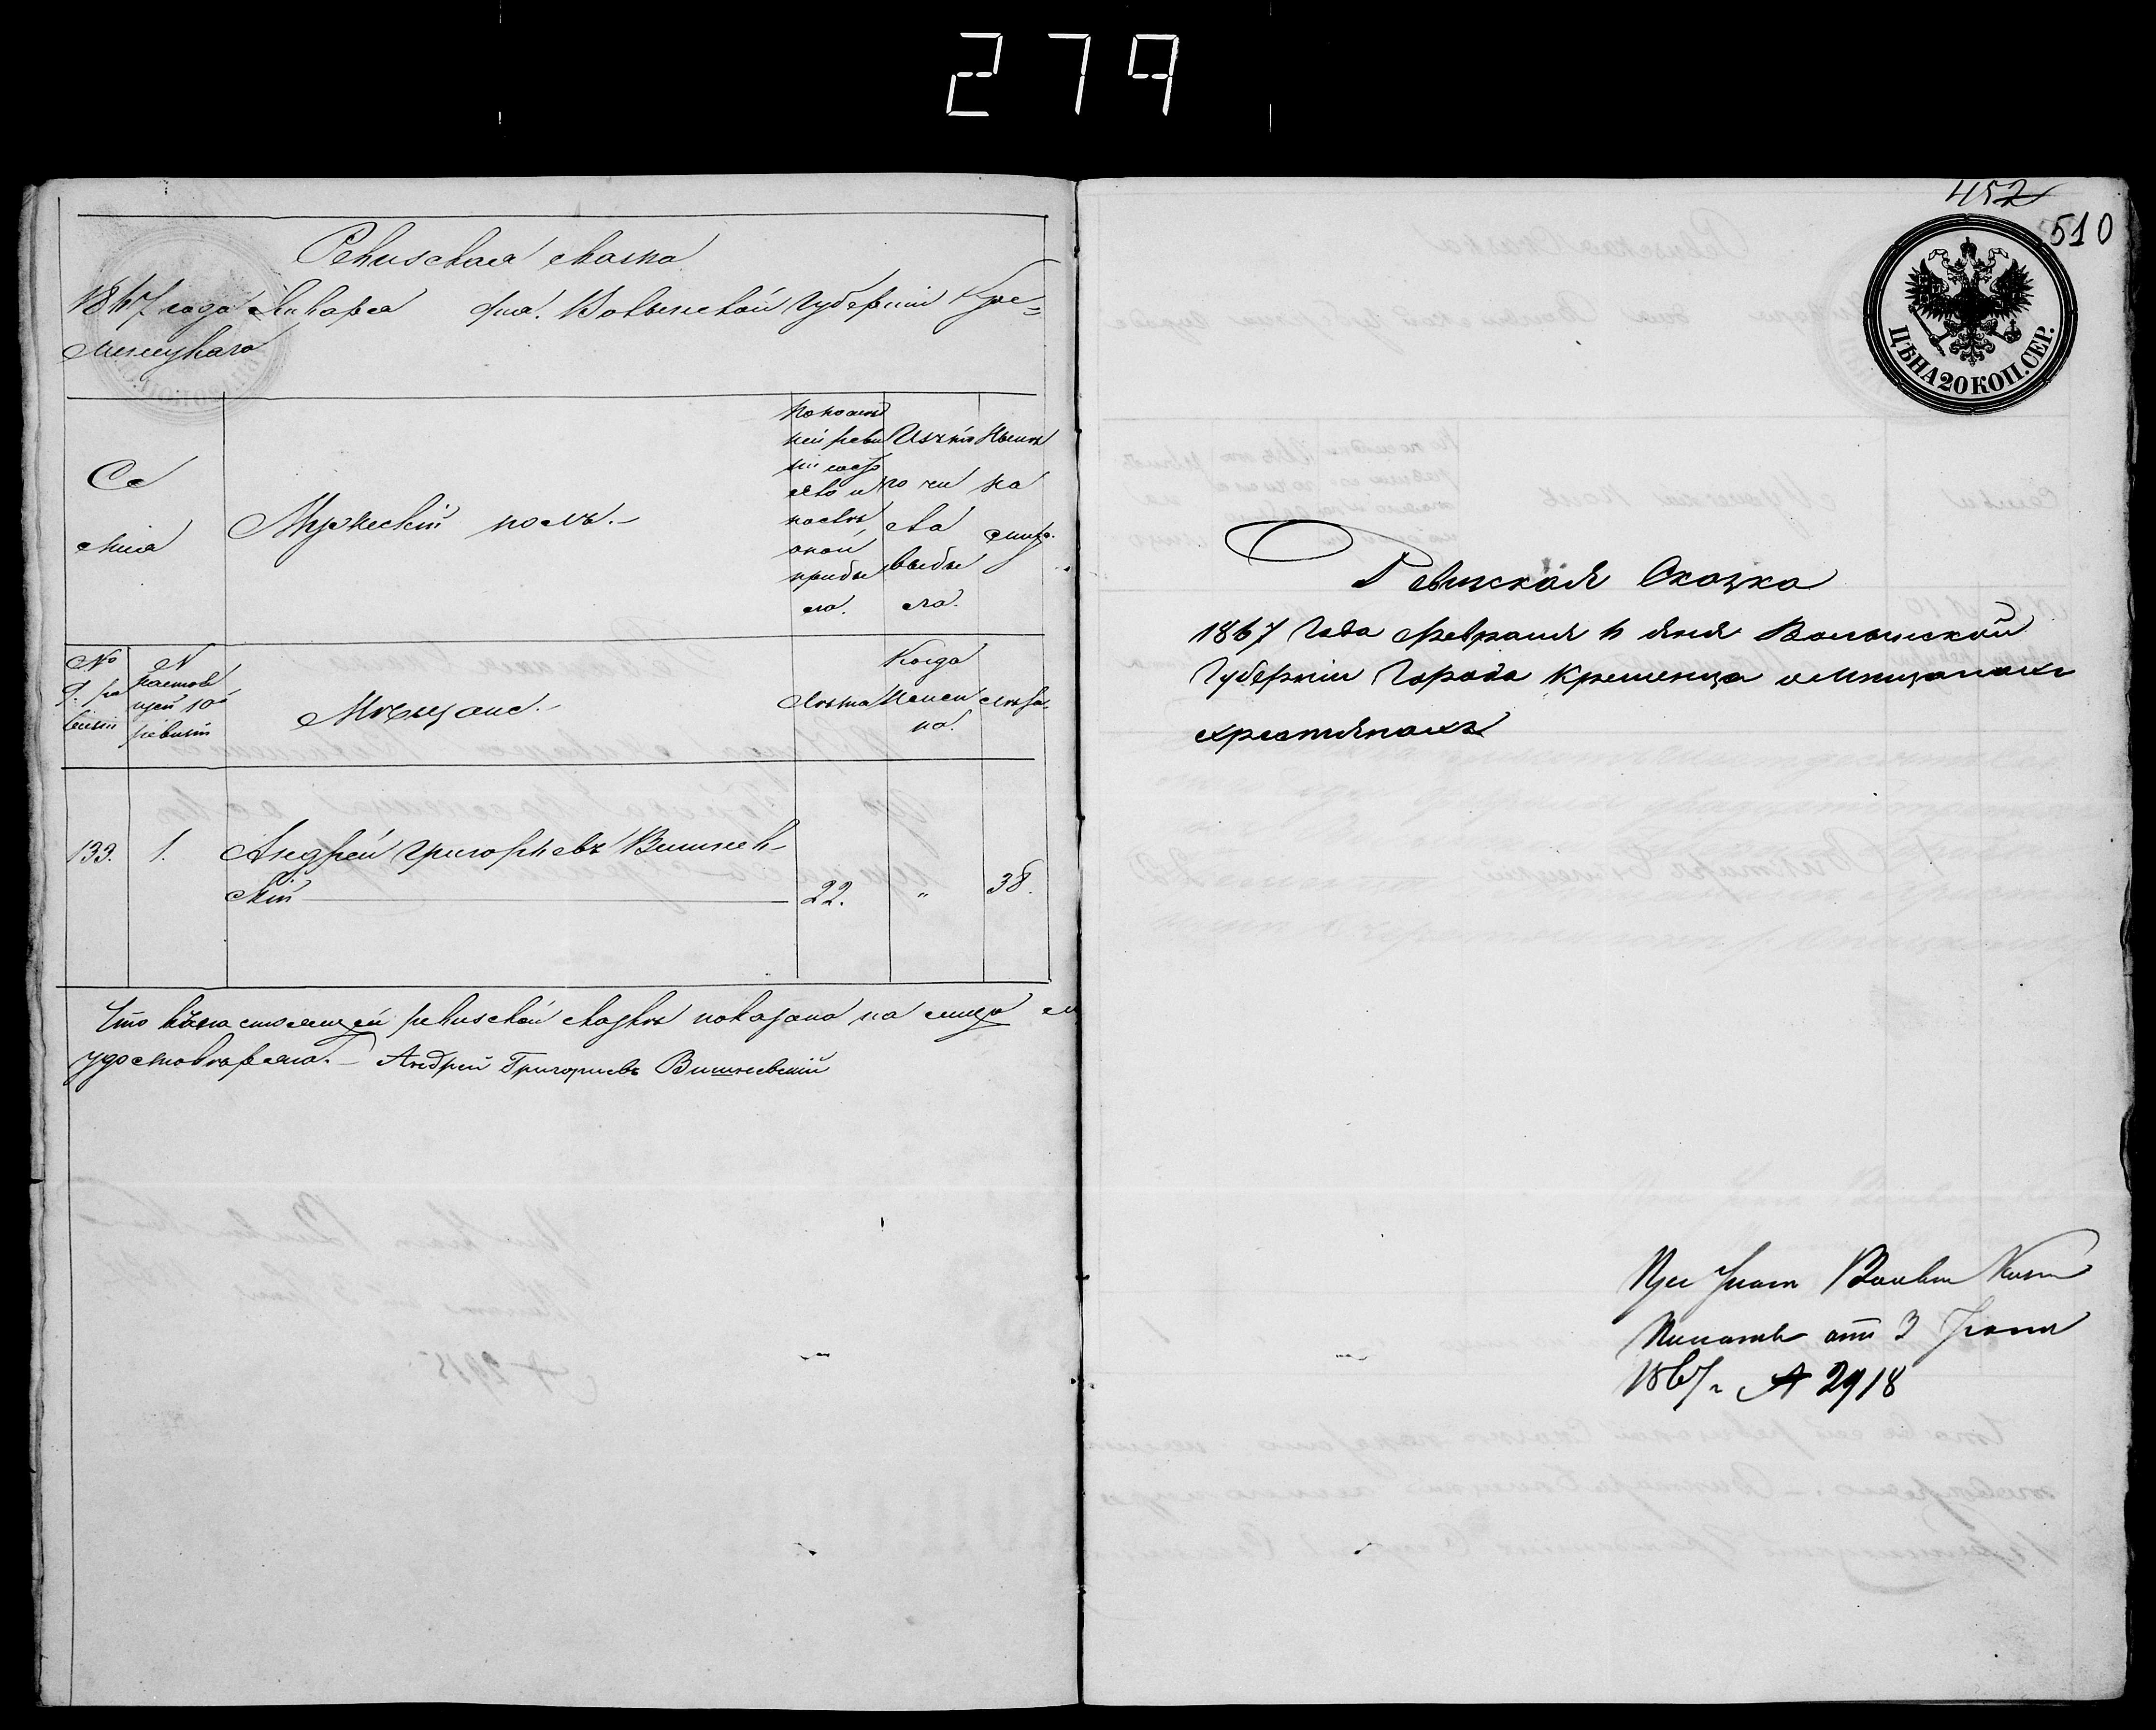 279
Ревизская сказка
1867 года Января дня. Волынской Губернии Кре=
менецкаго
Се
мья
Мужескій полъ.-
По послед
ней реви
зіи состо
яло и
послѣ
оной
прибы
ло.
Изъ то
го чи
сла
выбы
ло.
Нынѣ
на
лицо.
№
9. ре
визіи
№
настоя
щей 10й
ревизіи
Мѣщане.-
Лѣта
Когда
Именн
но.
Лѣта.
133. 1. Андрей Григорьевъ Вишнев-
скій 22. " 38.
Что въ настоящей ревизской сказкѣ показано на лицо
удостовѣряю.- Андрей Григориевъ Вишневскій
452
510
ЦѢНА 20 КОП. СЕР.
Ревизская Сказка
1867 Года Февраля дня Волынской
Губерніи Города Кременца о мищанахъ
християнахъ
При Указѣ Волын Казн
Палаты отъ 3 Іюня
1867 г № 2918